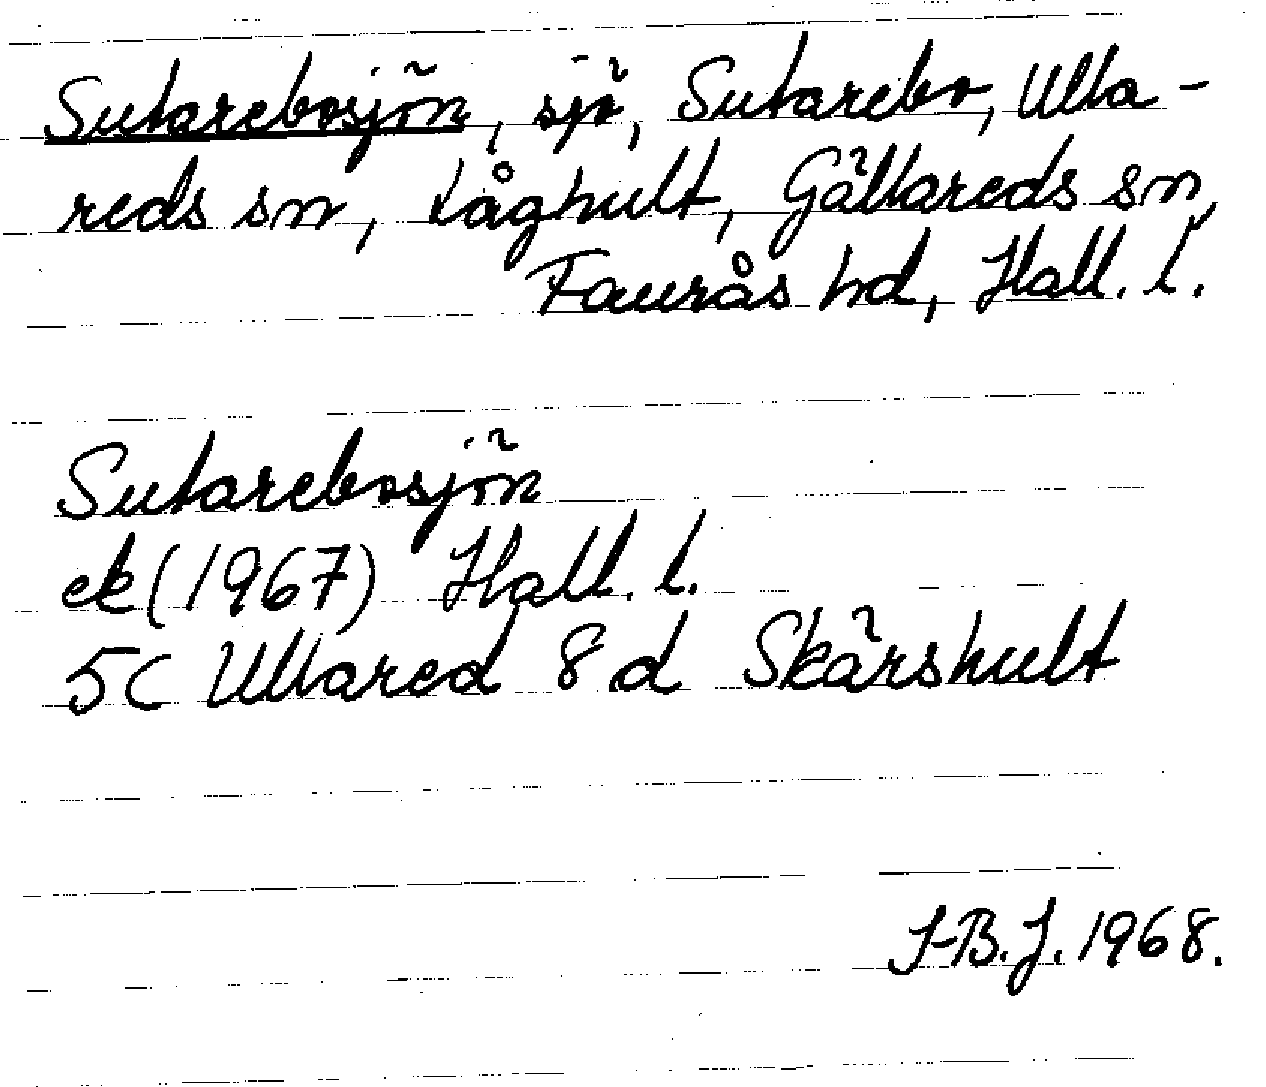 Sutarebosjön, sjö, Sutarebo, Ulla-
reds sn, Låghult, Gällareds sn,
Faurås hd, Hall. l.
Sutarebosjön
ek (1967) Hall. l.
5C Ullared 8d Skärshult
J-B.J. 1968.